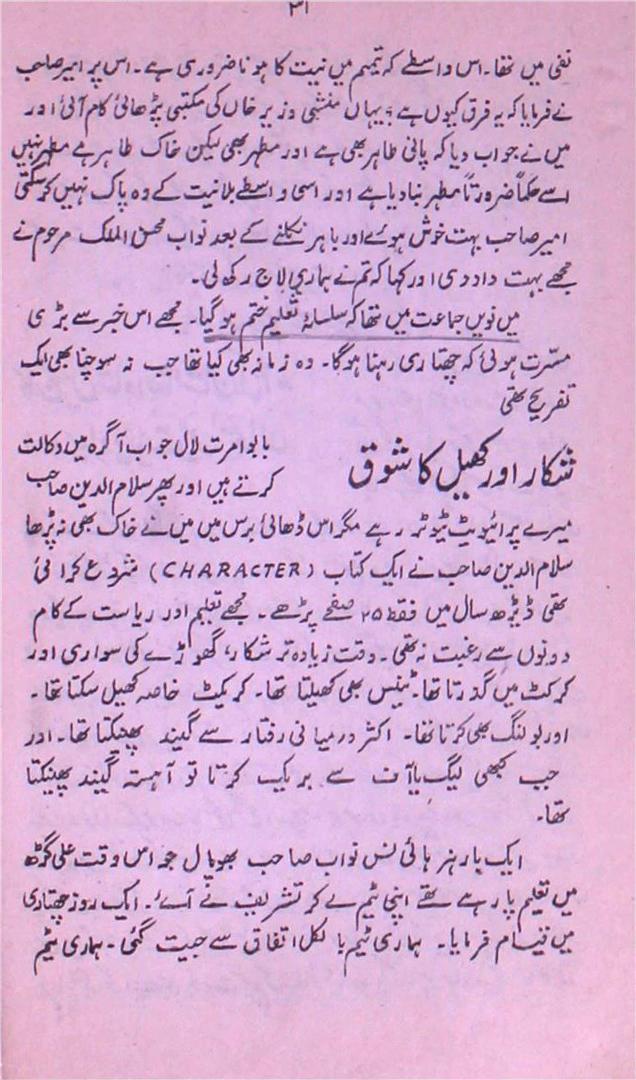 ۳۱
نفی میں تھا۔ اس واسطے کہ تیمم میں نیت کا ہونا ضروری ہے۔ اس پر امیر صاحب
نے فرمایا کہ یہ فرق کیوں ہے؟ یہاں منشی وزیر خاں کی مکتبی پڑھائی کام آئی اور
میں نے جواب دیا کہ پانی طاہر بھی ہے اور مطہر بھی لیکن خاک طاہر ہے مطہر نہیں
اسے حکماً ضرورتاً مطہر بنا دیا ہے اور اسی واسطے بلا نیت کے وہ پاک نہیں کر سکتی
امیر صاحب بہت خوش ہوئے اور باہر نکلنے کے بعد نواب محسن الملک مرحوم نے
مجھے بہت داد دی اور کہا کہ تم نے ہماری لاج رکھ لی۔
میں نویں جماعت میں تھا کہ سلسلۂ تعلیم ختم ہو گیا۔ مجھے اس خبر سے بڑی
مسرت ہوئی کہ چھتاری رہنا ہوگا۔ وہ زمانہ بھی کیا تھا جب نہ سوچنا بھی ایک
تفریح تھی
شکار اور کھیل کا شوق
بابو امرت لال جو اب آگرہ میں وکالت
کرتے ہیں اور پھر سلام الدین صاحب
میرے پرائیویٹ ٹیوٹر رہے مگر اس ڈھائی برس میں میں نے خاک بھی نہ پڑھا
سلام الدین صاحب نے ایک کتاب (CHARACTER) شروع کرائی
تھی ڈیڑھ سال میں فقط ۲۵ صفحے پڑھے۔ مجھے تعلیم اور ریاست کے کام
دونوں سے رغبت نہ تھی۔ وقت زیادہ تر شکار، گھوڑے کی سواری اور
کرکٹ میں گذرتا تھا۔ ٹینس بھی کھیلتا تھا۔ کرکیٹ خاصہ کھیل سکتا تھا۔
اور بولنگ بھی کرتا تھا۔ اکثر درمیانی رفتار سے گیند پھینکتا تھا۔ اور
جب کبھی لیگ یا آف سے بریک کرتا تو آہستہ گیند پھینکتا
تھا۔
ایک بار ہز ہائی نس نواب صاحب بھوپال جو اس وقت علی گڑھ
میں تعلیم پا رہے تھے اپنی ٹیم لے کر تشریف لے آئے۔ ایک روز چھتاری
میں قیام فرمایا۔ ہماری ٹیم بالکل اتفاق سے جیت گئی۔ ہماری ٹیم